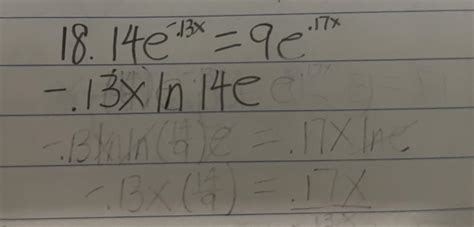 18. 14e^-.13x = 9e^.17x
-.13x ln 14e
-.13x ln(14/9)e = .17x lne
-.13x(14/9) = .17x
.13x